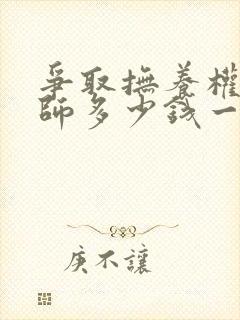 爭取撫養權
師多少錢一
庚不讓